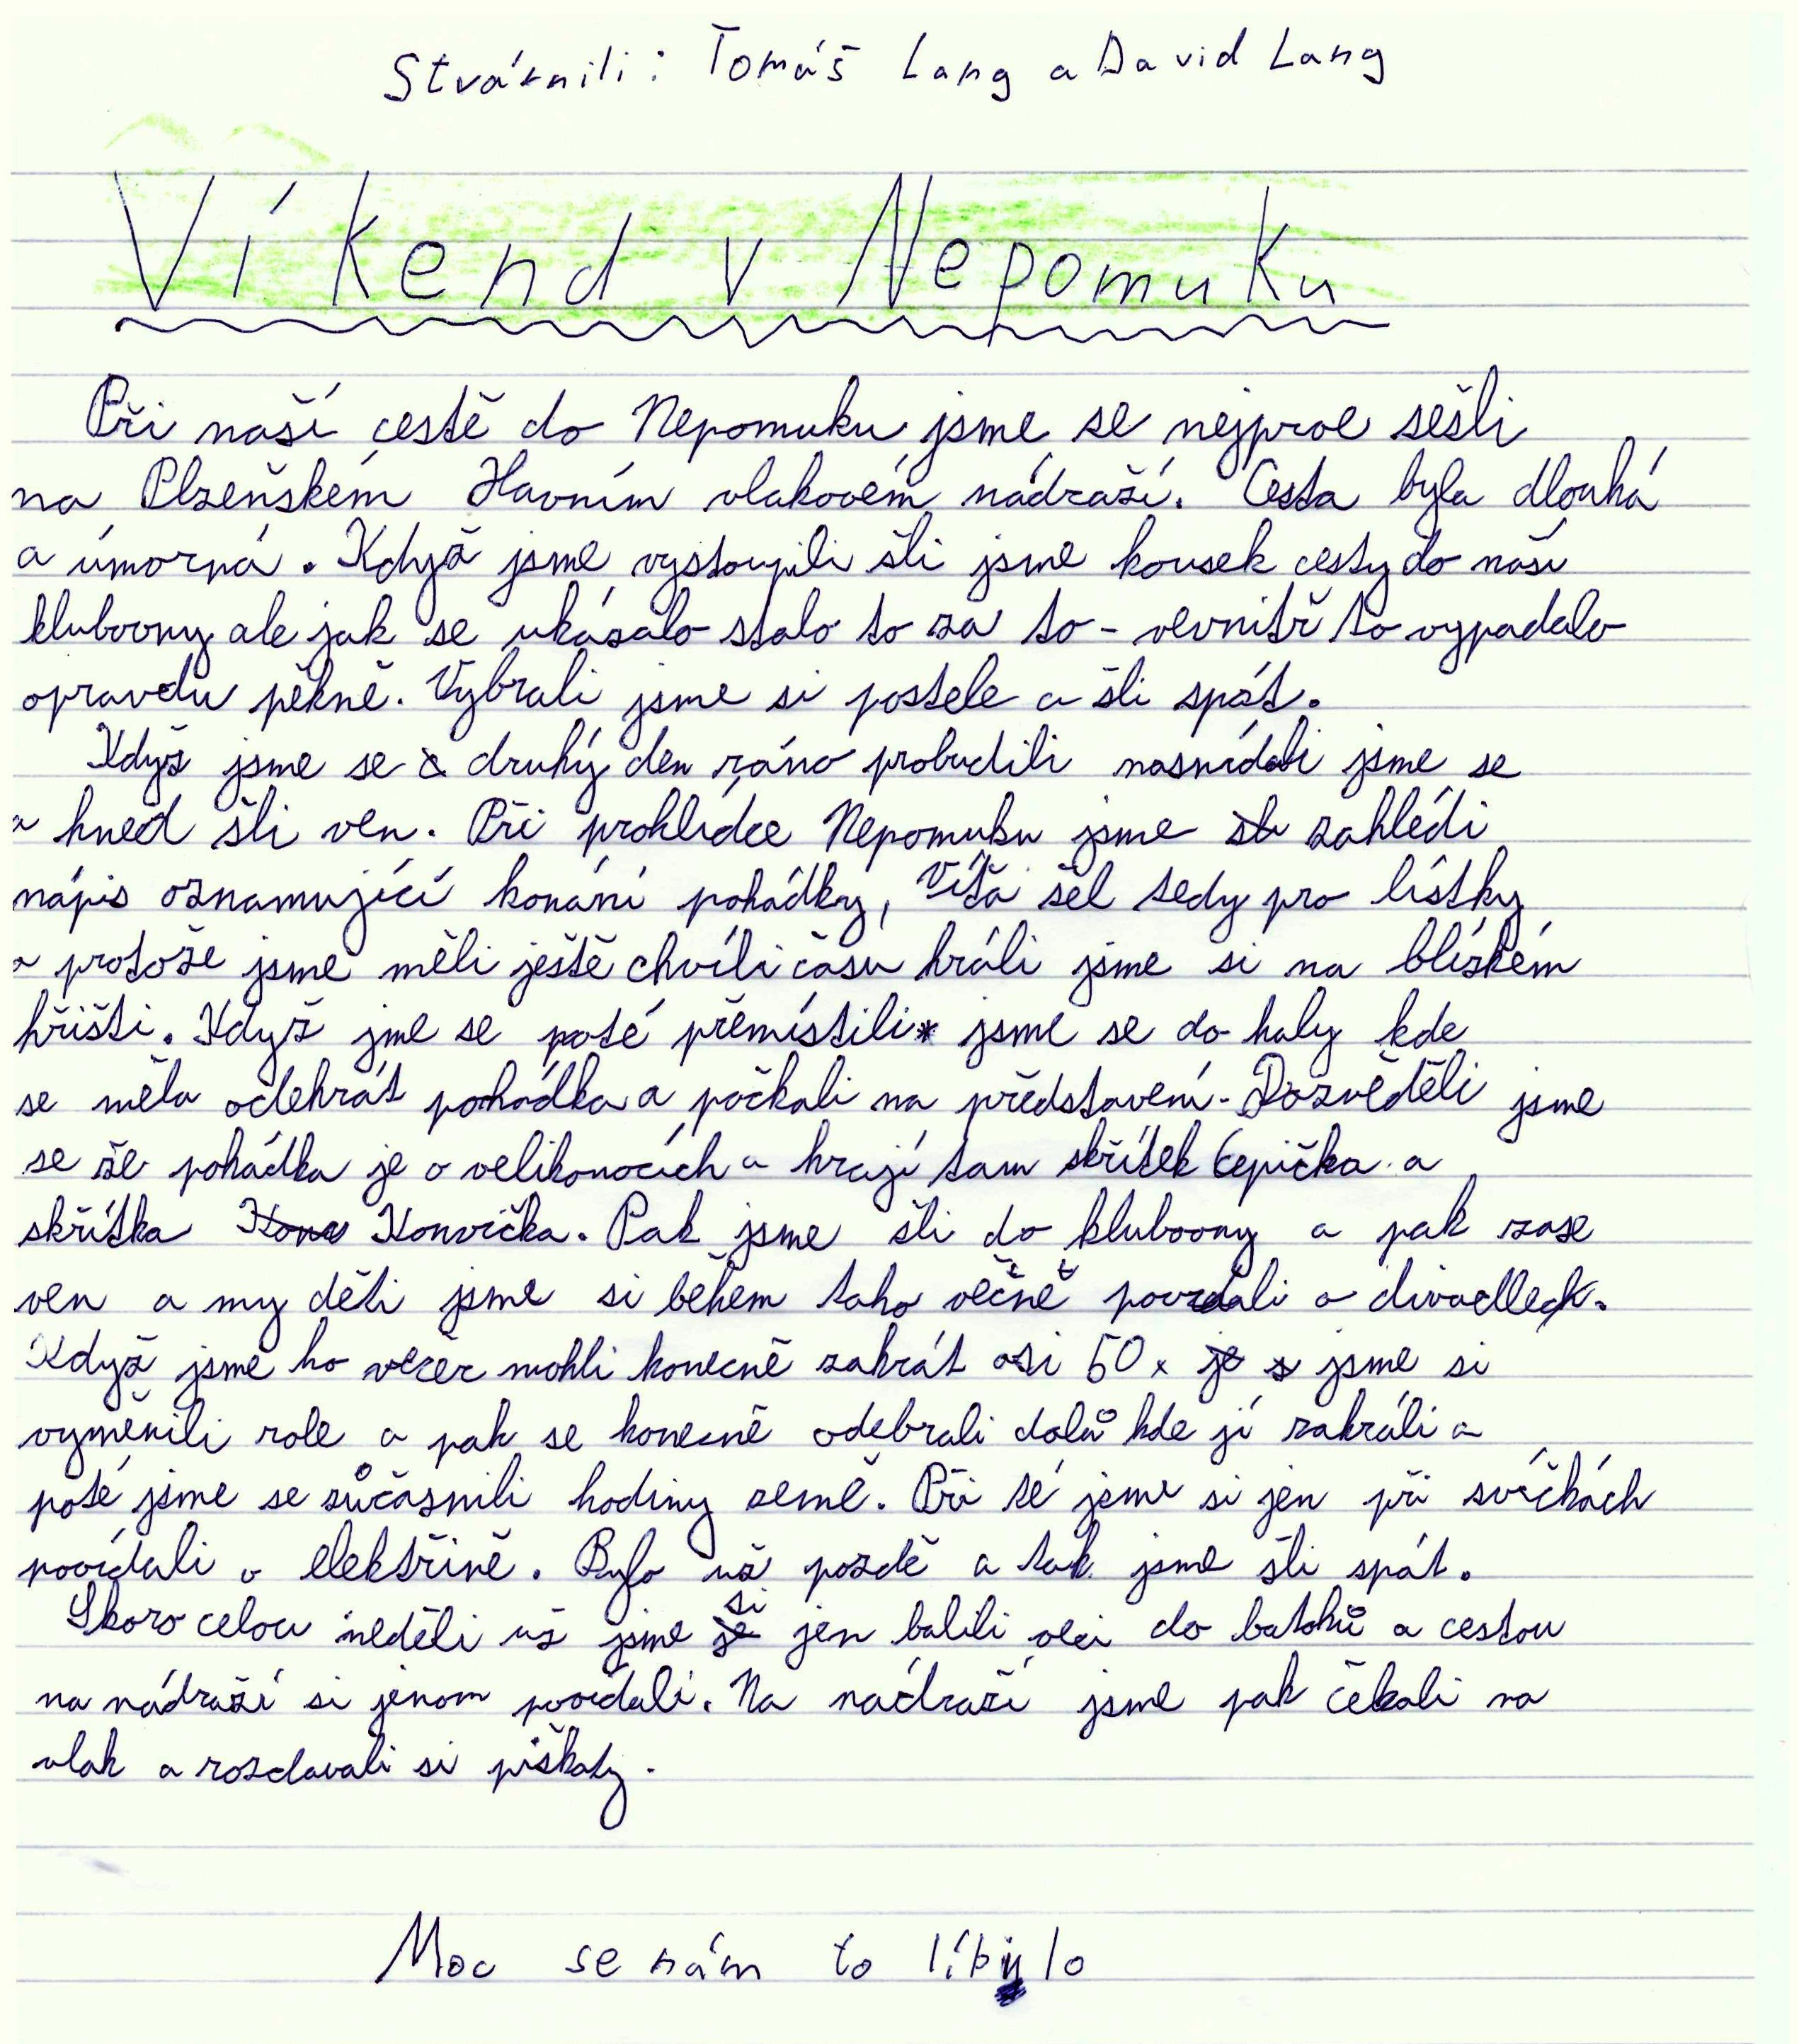 Stvárnili: Tomáš Lang a David Lang
Víkend v Nepomuku
Při naší cestě do Nepomuku jsme se nejprve sešli
na Plzeňském Hlavním vlakovém nádraží. Cesta byla dlouhá
a úmorná. Když jsme vystoupili šli jsme kousek cesty do naší
klubovny ale jak se ukázalo stalo to za to - vevnitř to vypadalo
opravdu pěkně. Vybrali jsme si postele a šli spát.
Když jsme se druhý den ráno probudili nasnídali jsme se
a hned šli ven. Při prohlídce Nepomuku jsme zahlédli
nápis oznamující konání pohádky, Víťa šel tedy pro lístky
a protože jsme měli ještě chvíli času hráli jsme si na blízkém
hřišti. Když jme se poté přemístili* jsme se do haly kde
se měla odehrát pohádka a počkali na představení. Dozvěděli jsme
se že pohádka je o velikonocích a hrají tam skřítek Čepička a
skřítka Konvička. Pak jsme šli do klubovny a pak zase
ven a my děti jsme si během toho věčně povídali o divadlech.
Když jsme ho večer mohli konečně zahrát asi 50x jsme si
vyměnili role a pak se konečně odebrali dolů kde jí zahráli a
poté jsme se zůčasnili hodiny země. Při té jsme si jen při svíčkách
povídali o elektřině. Bylo už pozdě a tak jsme šli spát.
Skoro celou neděli už jsme si jen balili věci do batohů a cestou
na nádraží si jenom povídali. Na nádraží jsme pak čekali na
vlak a rozdavali si piškoty.
Moc se nám to líbilo